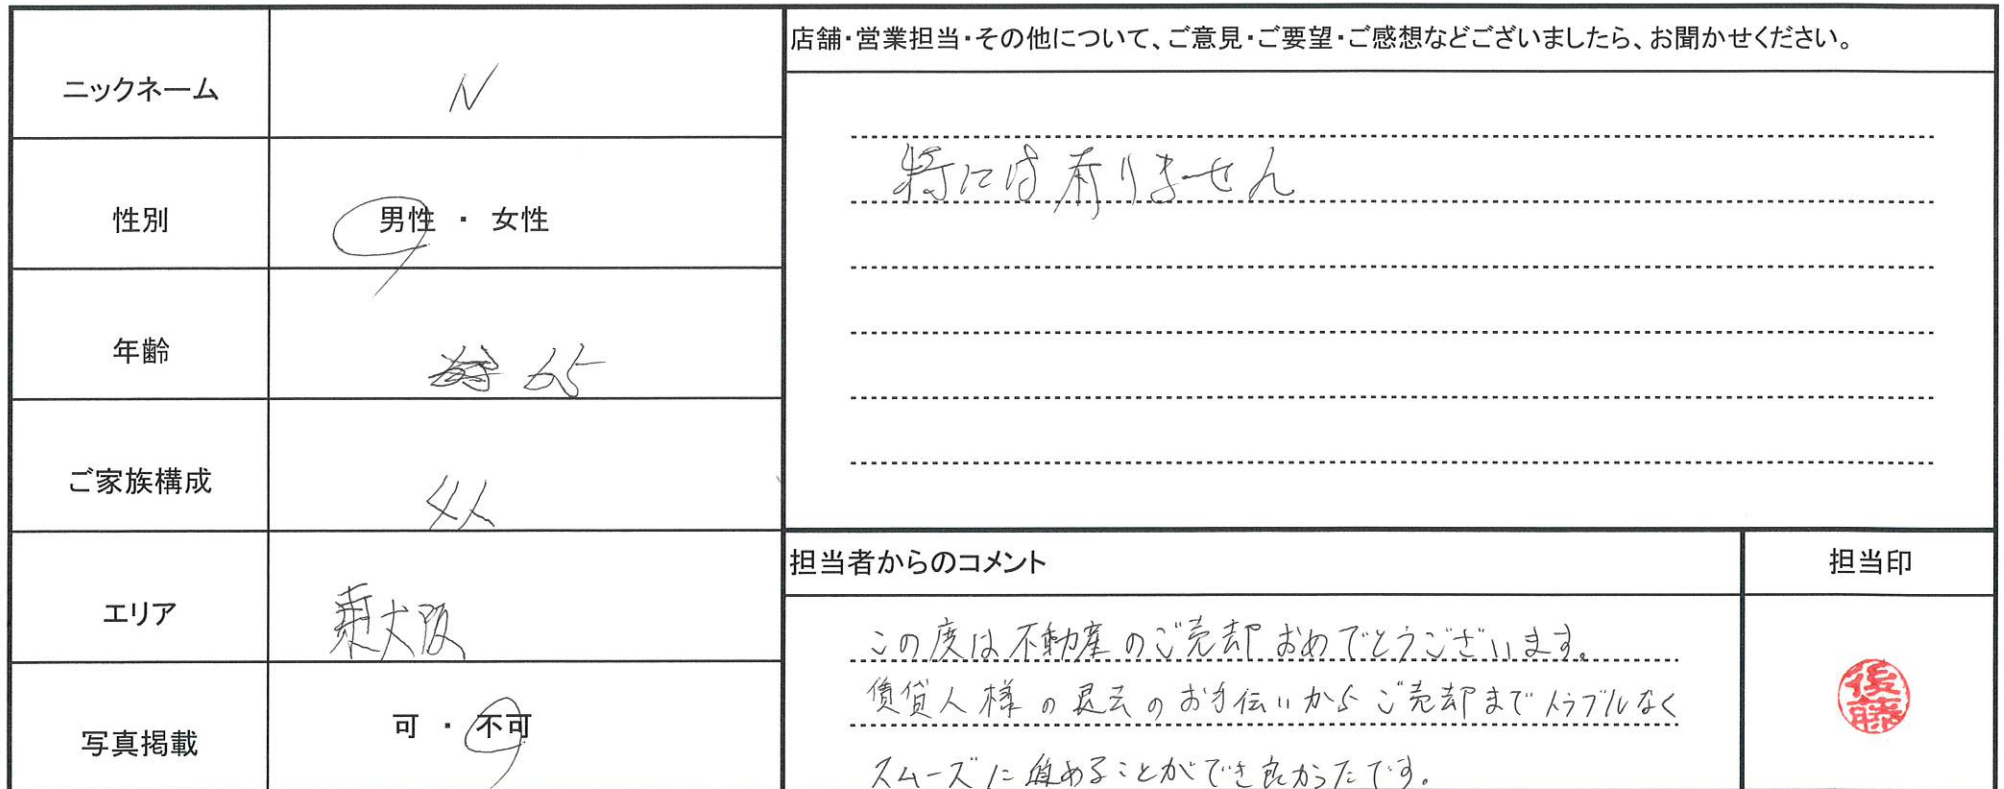 ニックネーム
N
性別
男性 ・ 女性
年齢
65
ご家族構成
4人
エリア
東大阪
写真掲載
可 ・ 不可
店舗・営業担当・その他について、ご意見・ご要望・ご感想などございましたら、お聞かせください。
特には有りません
担当者からのコメント
この度は不動産のご売却おめでとうございます。
賃貸人様の退去のお手伝いからご売却までトラブルなく
スムーズに進めることができ良かったです。
担当印
後藤